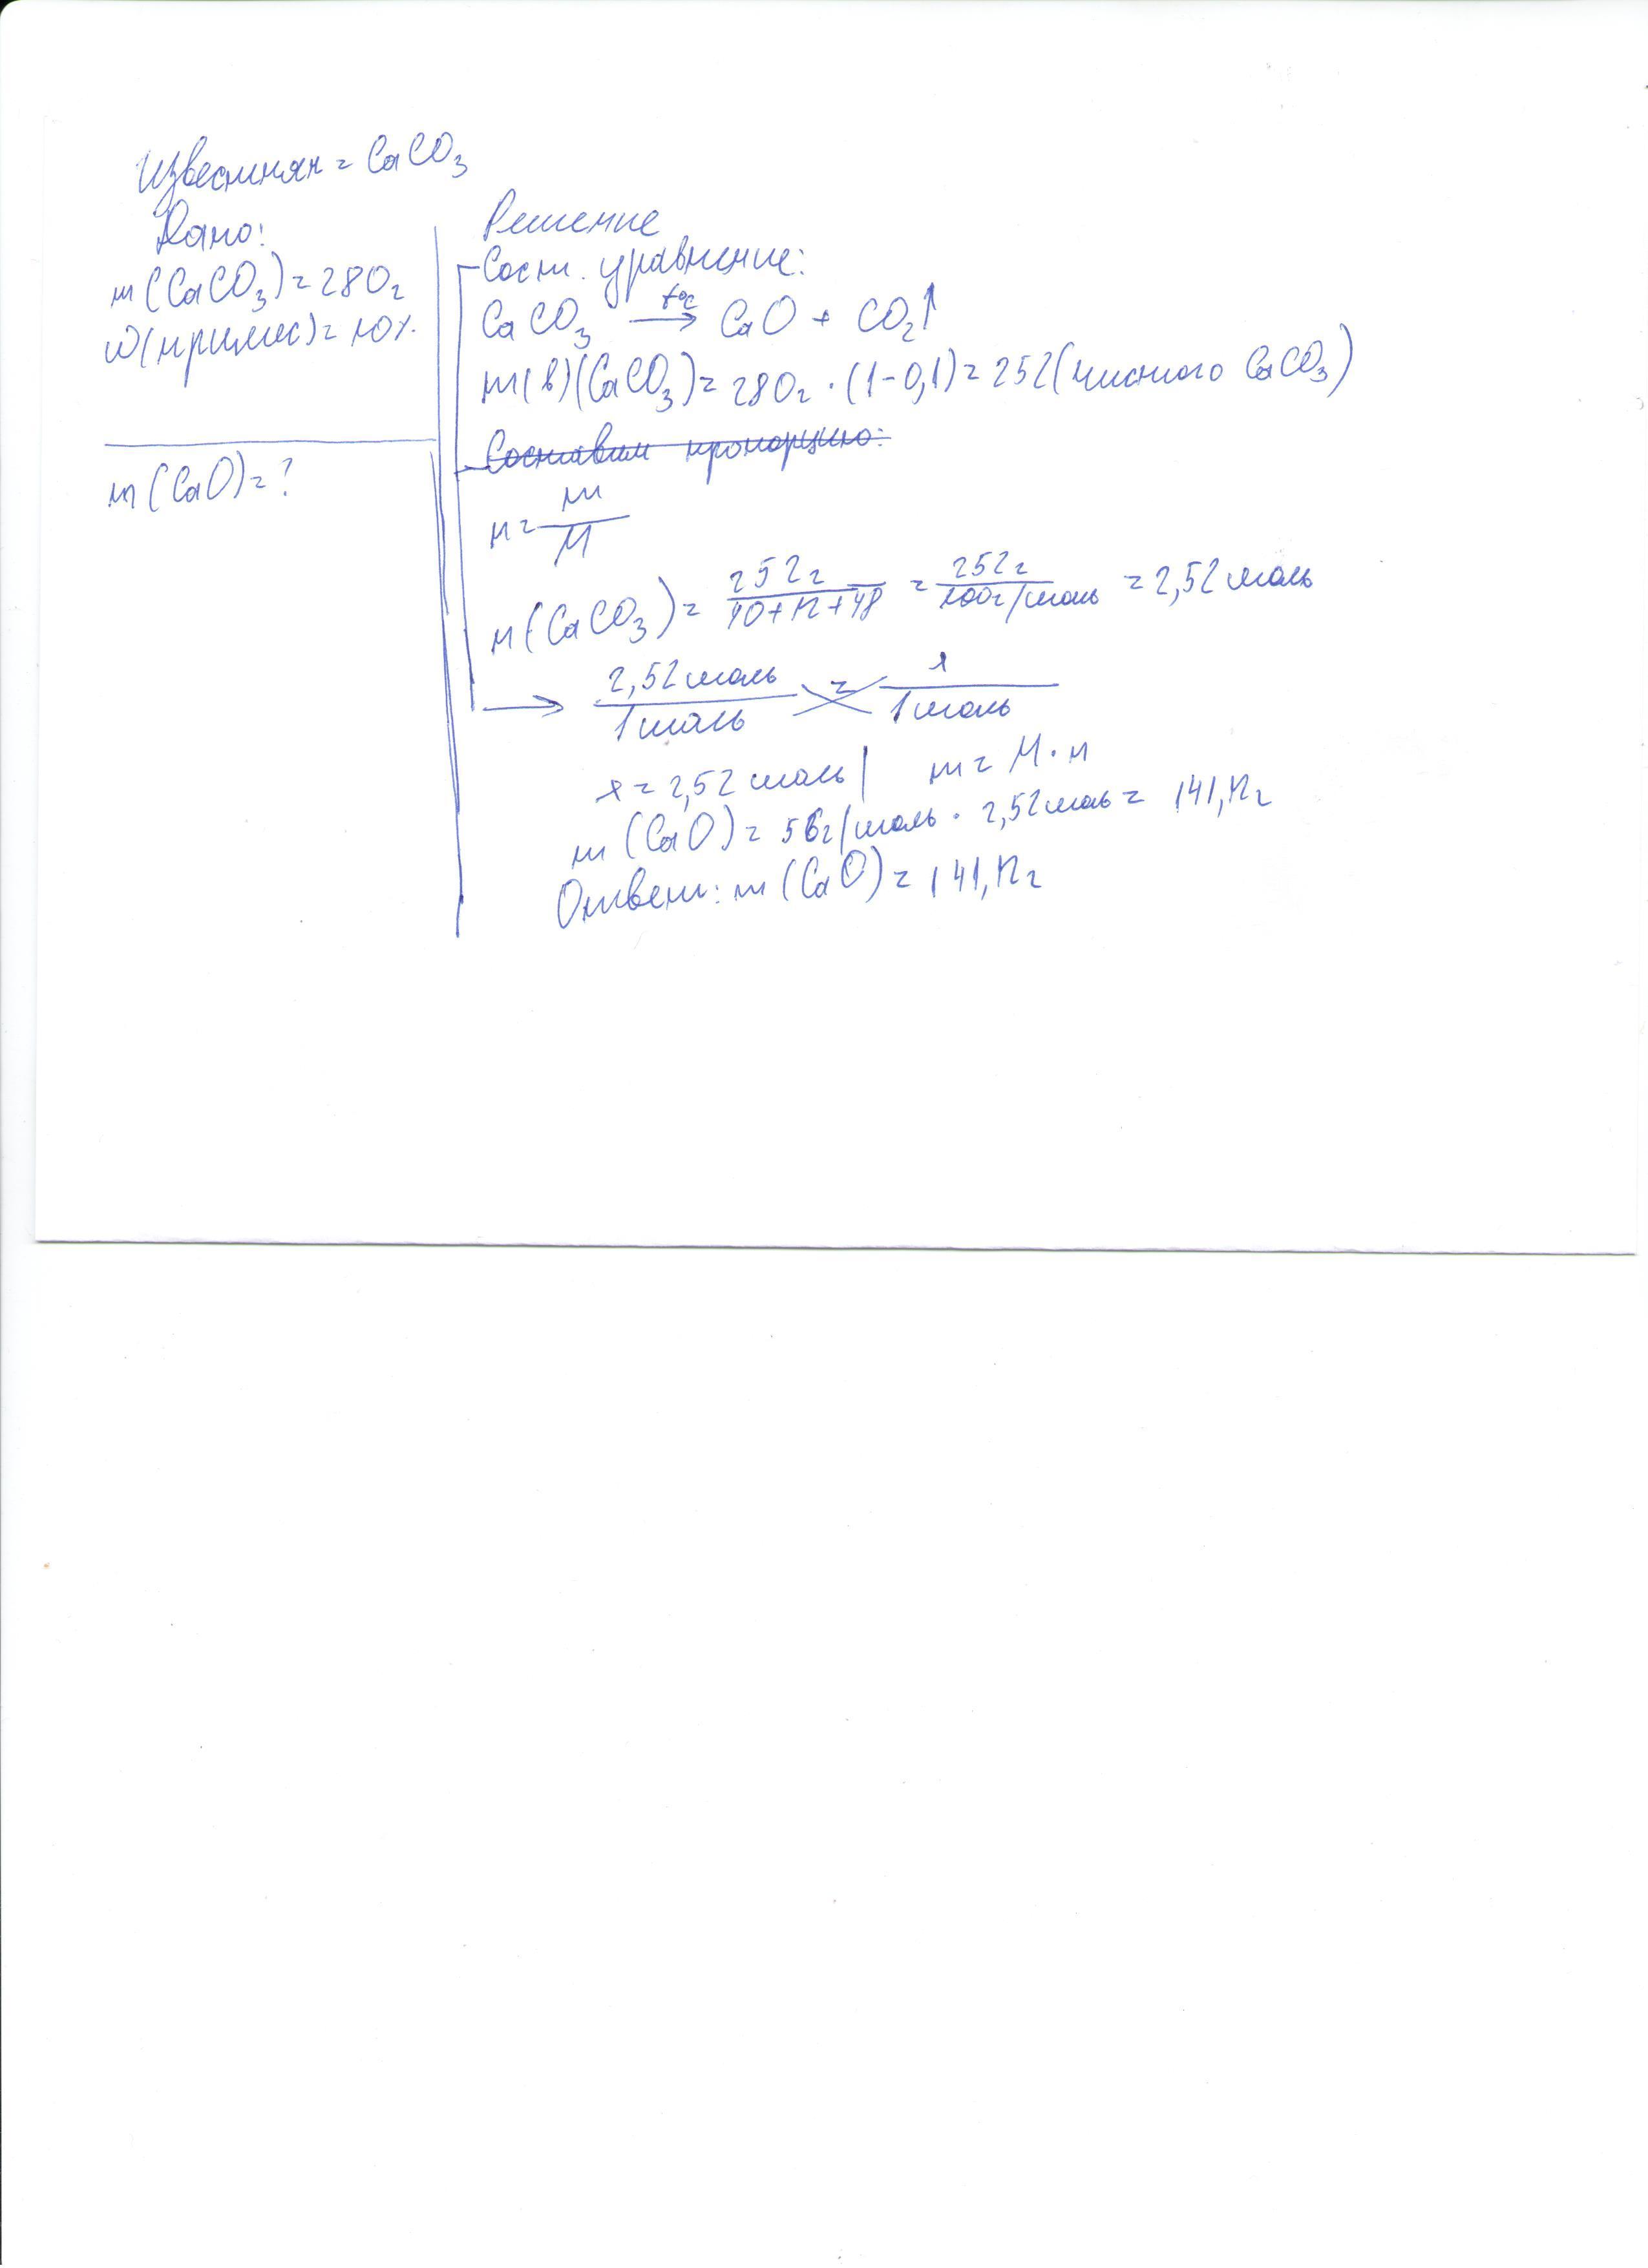 Известняк = CaCO3
Дано:
m(CaCO3) = 280г
ω(примес) = 10%
m(CaO) = ?
Решение
Сост. уравнение:
CaCO3 t°C → CaO + CO2↑
m(в)(CaCO3) = 280г · (1-0,1) = 252(чистого CaCO3)
Составим пропорцию:
n = m/M
n(CaCO3) = 252г/40+12+48 = 252г/100г/моль = 2,52 моль
→ 2,52 моль/1 моль = x/1 моль
x = 2,52 моль | m = M · n
m(CaO) = 56г/моль · 2,52 моль = 141,12г
Ответ: m(CaO) = 141,12г